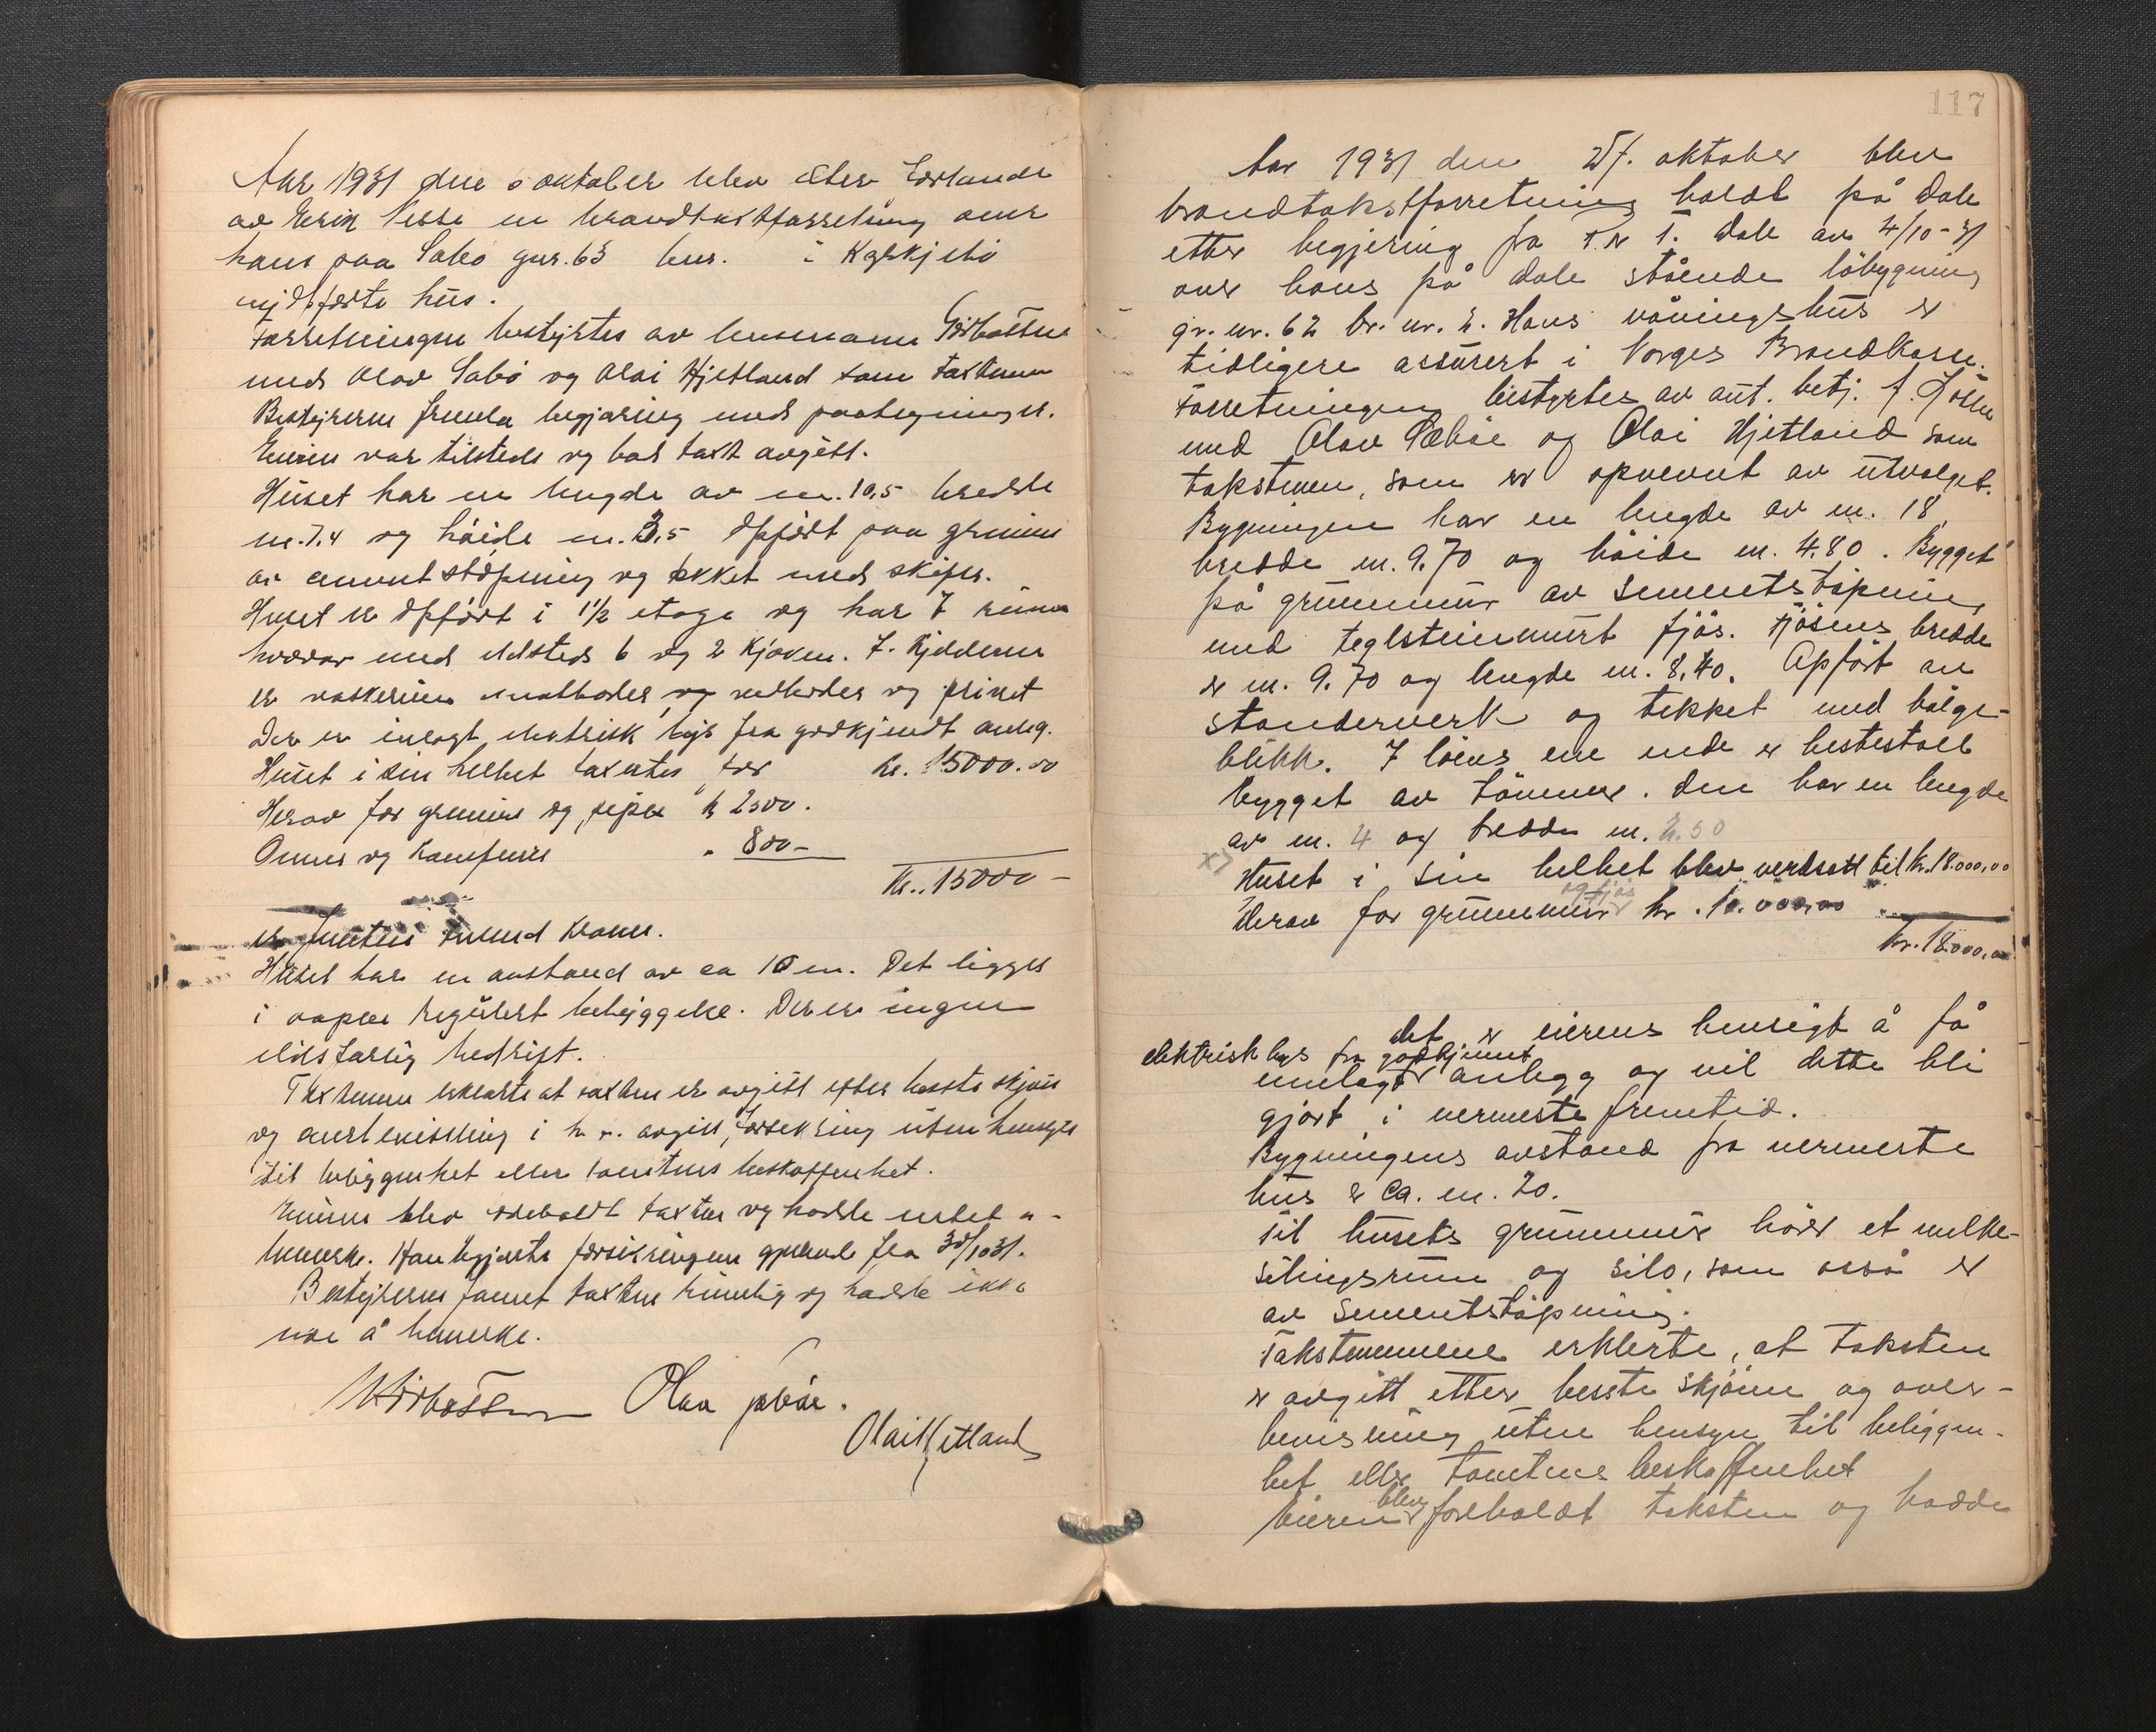 Aar 1931 den 6 oktober blev efter forlande
av Eirik Nesse en brandtakstforretning over
hans paa Sæbø gnr. 63 bnr. i Kyrkjebø
nyopførte hus.
Forretningen bestyrtes av lensmann
med Olav Sæbø og Olai Hjetland som taxtmen
Bestyreren fremla begjæring med paategninger.
Eieren var tilstede og bad taxt avgitt.
Huset har en lengde av m. 10,5 bredde
m. 7,4 og høide m. 3,5 Opført paa grunmur
av cementstøpning og tekket med skifer.
Huset er opført i 1½ etage og har 7 rum
hvorav med ildsted 6 og 2 kjøken. I Kjelderen
er vaskerum matboder og vedboder og privet
Der er inlagt elektrisk lys fra godkjendt anleg.
Huset i sin helhet taxertes for kr. 15000.00
Herav for grunmur og piper kr 2500.
Ovner og komfurer " 800 -
Kr. 15000 -
er
Huset har en avstand av ca 10 m. Det ligger
i aapen regulert bebyggelse. Der er ingen
ildsfarlig bedrift.
Taxtmenn erklærte at taxten er avgitt efter beste skjøn
og overbevisning i h. v. avgitt forsikring uten hensyn
til beliggenhet eller tomtens beskaffenhet.
Eieren blev foreholdt taxten og hadde intet a-
bemerke. Han begjærte forsikringen gjeldende fra 30/10 31.
Bestyreren fannt taxten rimelig og hadde ikke
noe å bemerke.
Olav Sæbø.
Olai Hjetland
117
Aar 1931 den 27. oktober blev
brandtakstforretning holdt på Dale
etter begjering fra T. N. T. Dale av 4/10-31
over hans på Dale stående løbygning
gr. nr. 62 br. nr. 2. Hans våningshus er
tidligere assurert i Norges Brandkasse.
Forretningen bestyrtes av aut. betj. A.
med Olav Sæbøe og Olai Hjetland som
takstmen, som er opnevnt av utvalget.
Bygningen har en lengde av m. 18,
bredde m. 9.70 og höide m. 4.80. Bygget
på grunnmur av sementstöpning
med teglsteinmurt fjös. Fjösens bredde
er m. 9.70 og lengde m. 8.40. Opfört av
standerverk og tekket med bölge-
blikk. I löens ene ende er hestestall
bygget av tömmer. Den har en lengde
av m. 4 og bredde m. 2.50
x) Huset i sin helhet blev verdsatt til kr. 18.000,00
og fjös
Derav for grunnmur kr. 10.000,00
kr. 18.000,00
det er eierens hensigt å få
elektrisk lys fra godkjennt
innlagt anlegg og vil dette bli
gjort i nermeste fremtid.
Bygningens avstand fra nermeste
hus er ca. m. 20.
Til husets grunnmur hörer et melke-
silingsrum og silo, som også er
av sementstöpning.
Takstmennene erklerte, at taksten
er avgitt etter beste skjönn og over-
bevisning uten hensyn til beliggen-
het eller tomtens beskaffenhet
blev
Eieren foreholdt taksten og hadde